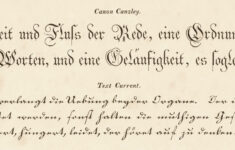 Canon Canzley.
eit und Fluss der Rede, eine Ordnun
Worten, und eine Geläufigkeit, es sogle
Text Current.
verlangt die Uebung beyder Organe. Der
tet werden, sonst halten die muthigen Ges
ert, hungert, leidet, der hört auf zu denken